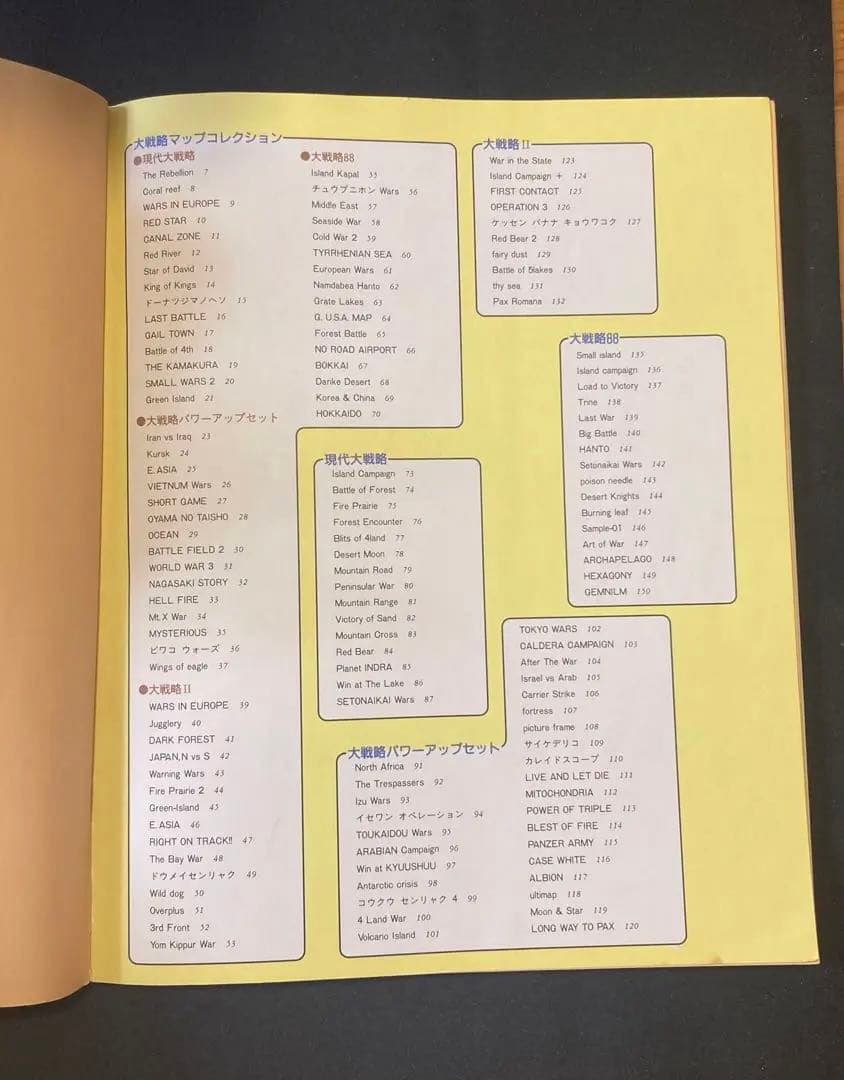 大戦略マップコレクション
●現代大戦略
The Rebellion 7
Coral reef 8
WARS IN EUROPE 9
RED STAR 10
CANAL ZONE 11
Red River 12
Star of David 13
King of Kings 14
ドーナツジマノヘソ 15
LAST BATTLE 16
GAIL TOWN 17
Battle of 4th 18
THE KAMAKURA 19
SMALL WARS 2 20
Green Island 21
●大戦略パワーアップセット
Iran vs Iraq 23
Kursk 24
E.ASIA 25
VIETNUM Wars 26
SHORT GAME 27
OYAMA NO TAISHO 28
OCEAN 29
BATTLE FIELD 2 30
WORLD WAR 3 31
NAGASAKI STORY 32
HELL FIRE 33
Mt.X War 34
MYSTERIOUS 35
ビワコ ウォーズ 36
Wings of eagle 37
●大戦略II
WARS IN EUROPE 39
Jugglery 40
DARK FOREST 41
JAPAN,N vs S 42
Warning Wars 43
Fire Prairie 2 44
Green-Island 45
E.ASIA 46
RIGHT ON TRACK!! 47
The Bay War 48
ドウメイセンリャク 49
Wild dog 50
Overplus 51
3rd Front 52
Yom Kippur War 53
●大戦略88
Island Kapal 55
チュウブニホン Wars 56
Middle East 57
Seaside War 58
Cold War 2 59
TYRRHENIAN SEA 60
European Wars 61
Namdabea Hanto 62
Grate Lakes 63
G. U.S.A. MAP 64
Forest Battle 65
NO ROAD AIRPORT 66
BOKKAI 67
Darike Desert 68
Korea & China 69
HOKKAIDO 70
現代大戦略
Island Campaign 73
Battle of Forest 74
Fire Prairie 75
Forest Encounter 76
Blits of 4land 77
Desert Moon 78
Mountain Road 79
Peninsular War 80
Mountain Range 81
Victory of Sand 82
Mountain Cross 83
Red Bear 84
Planet INDRA 85
Win at The Lake 86
SETONAIKAI Wars 87
大戦略パワーアップセット
North Africa 91
The Trespassers 92
Izu Wars 93
イセワン オペレーション 94
TOUKAIDOU Wars 95
ARABIAN Campaign 96
Win at KYUUSHUU 97
Antarctic crisis 98
コウクウ センリャク 4 99
4 Land War 100
Volcano Island 101
TOKYO WARS 102
CALDERA CAMPAIGN 103
After The War 104
Israel vs Arab 105
Carrier Strike 106
fortress 107
picture frame 108
サイケデリコ 109
カレイドスコープ 110
LIVE AND LET DIE 111
MITOCHONDRIA 112
POWER OF TRIPLE 113
BLEST OF FIRE 114
PANZER ARMY 115
CASE WHITE 116
ALBION 117
ultimap 118
Moon & Star 119
LONG WAY TO PAX 120
大戦略II
War in the State 123
Island Campaign + 124
FIRST CONTACT 125
OPERATION 3 126
ケッセン バナナ キョウワコク 127
Red Bear 2 128
fairy dust 129
Battle of 5lakes 130
thy sea 131
Pax Romana 132
大戦略88
Small island 135
Island campaign 136
Load to Victory 137
Trine 138
Last War 139
Big Battle 140
HANTO 141
Setonaikai Wars 142
poison needle 143
Desert Knights 144
Burning leaf 145
Sample-01 146
Art of War 147
ARCHAPELAGO 148
HEXAGONY 149
GEMNILM 150